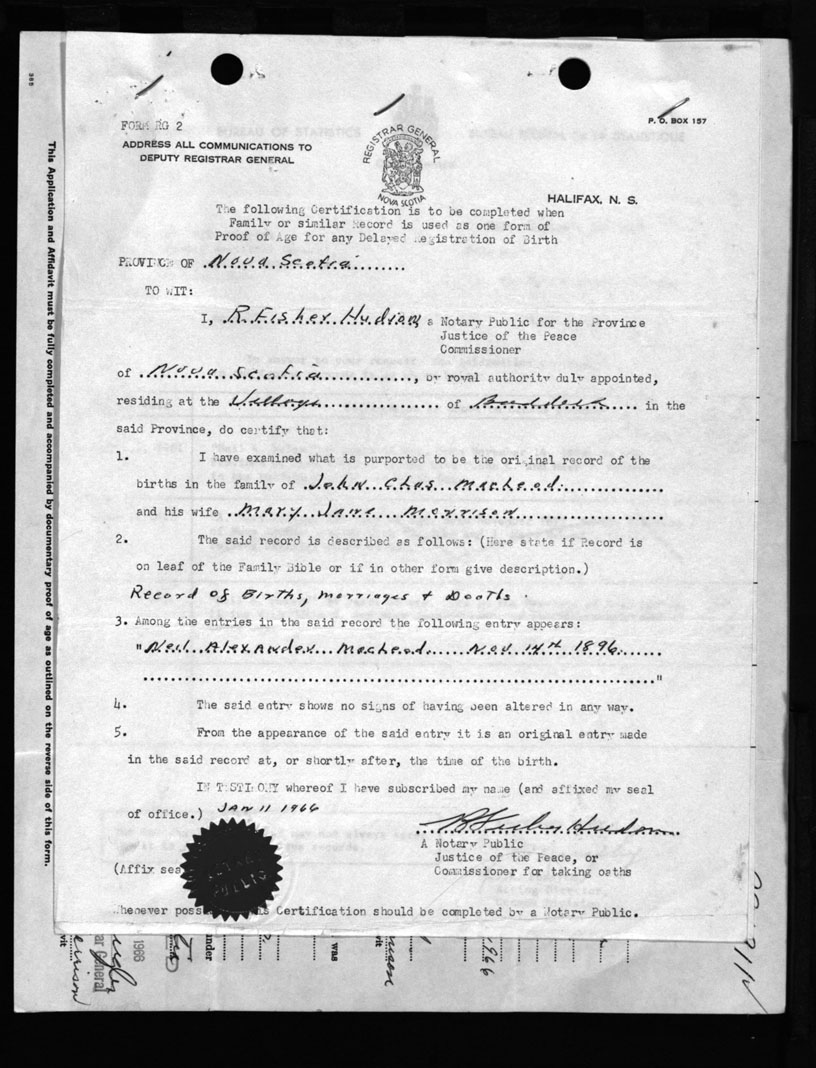 FORM RG 2
ADDRESS ALL COMMUNICATIONS TO
DEPUTY REGISTRAR GENERAL
REGISTRAR GENERAL
NOVA SCOTIA
P. O. BOX 157
HALIFAX, N. S.
The following Certification is to be completed when
Family or similar Record is used as one form of
Proof of Age for any Delayed Registration of Birth
PROVINCE OF Nova Scotia
TO WIT:
I, R Fisher Hudson, a Notary Public for the Province
Justice of the Peace
Commissioner
of Nova Scotia, by royal authority duly appointed,
residing at the Village of Baddeck in the
said Province, do certify that:
1. I have examined what is purported to be the original record of the
births in the family of John Chas MacLeod
and his wife Mary Jane Morrison
2. The said record is described as follows: (Here state if Record is
on leaf of the Family Bible or if in other form give description.)
Record of Births, Marriages & Deaths.
3. Among the entries in the said record the following entry appears:
"Neil Alexander MacLeod Nov 14th 1896
"
4. The said entry shows no signs of having been altered in any way.
5. From the appearance of the said entry it is an original entry made
in the said record at, or shortly after, the time of the birth.
IN TESTIMONY whereof I have subscribed my name (and affixed my seal
of office.) JAN 11 1966
R Fisher Hudson
A Notary Public
Justice of the Peace, or
Commissioner for taking oaths
(Affix sea
PUBLIC
Whenever poss Certification should be completed by a Notary Public.
This Application and Affidavit must be fully completed and accompanied by documentary proof of age as outlined on the reverse side of this form.
1966
rar General
under
was
1966